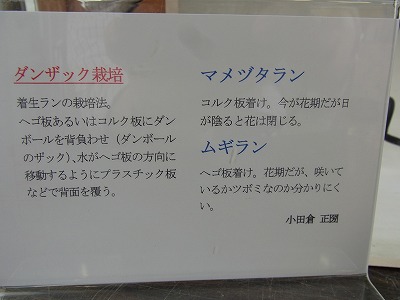 ダンザック栽培
着生ランの栽培法。
ヘゴ板あるいはコルク板にダン
ボールを背負わせ（ダンボール
のザック）、水がヘゴ板の方向に
移動するようにプラスチック板
などで背面を覆う。
マメヅタラン
コルク板着け。今が花期だが日
が陰ると花は閉じる。
ムギラン
ヘゴ板着け。花期だが、咲いて
いるかツボミなのか分かりにく
い。
小田倉 正圀